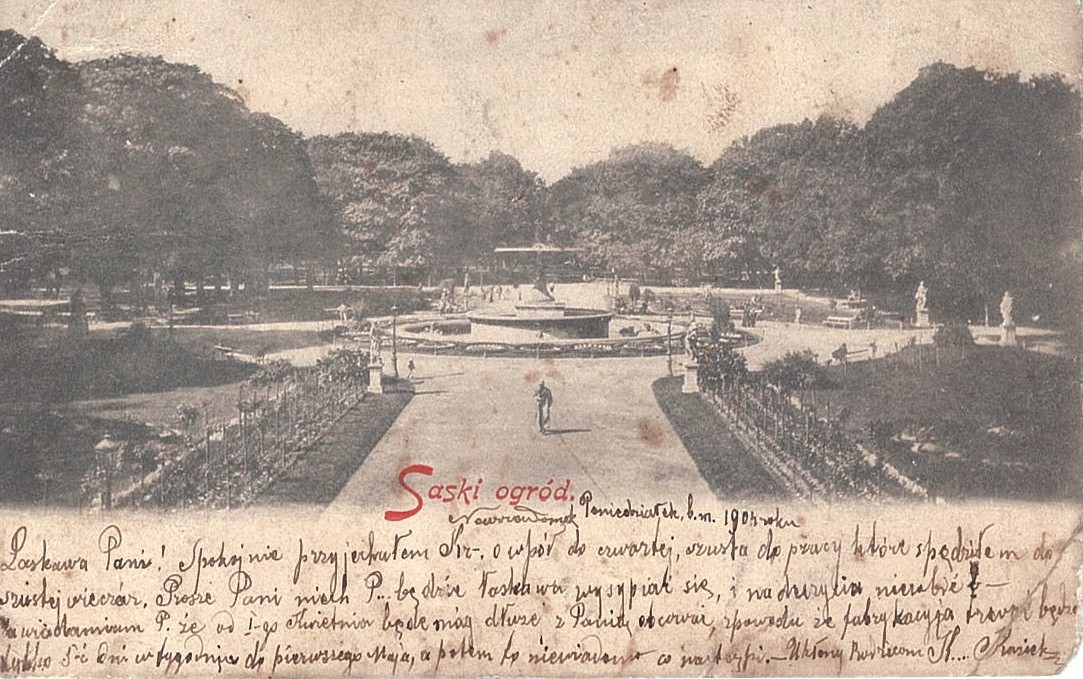 Saski ogród.
Noworadomsk Poniedziałek, b.m. 1904 roku
Łaskawa Pani! Spokojnie przyjechałem o wpół do czwartej, szusta do pracy które spędziłem do
szustej wieczór. Proszę Pani niech P... będzie łaskawa wysypiać się, i nadurzycia nierobić! —
Zawiadamiam P. że od I-go Kwietnia będę mág dłuże z Panią obcować, zpowodu że fabrykacyja trwać będzie
tylko 5-ć dni w tygodniu do pierwszego Maja, a potem to niewiadomo co nastąpi. — Ukłony Rodzicom K.... Kaziek